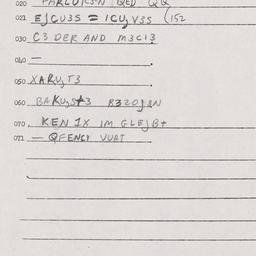 020
021 EJCU3S = ICUY3S (152
030 C3 DER AND M3C13
040 —
050 XARUYT3
060 BAKUYS+3 R320J&N
070 KEN 1X IM GLEJB+
071 — QFENCY VUAT